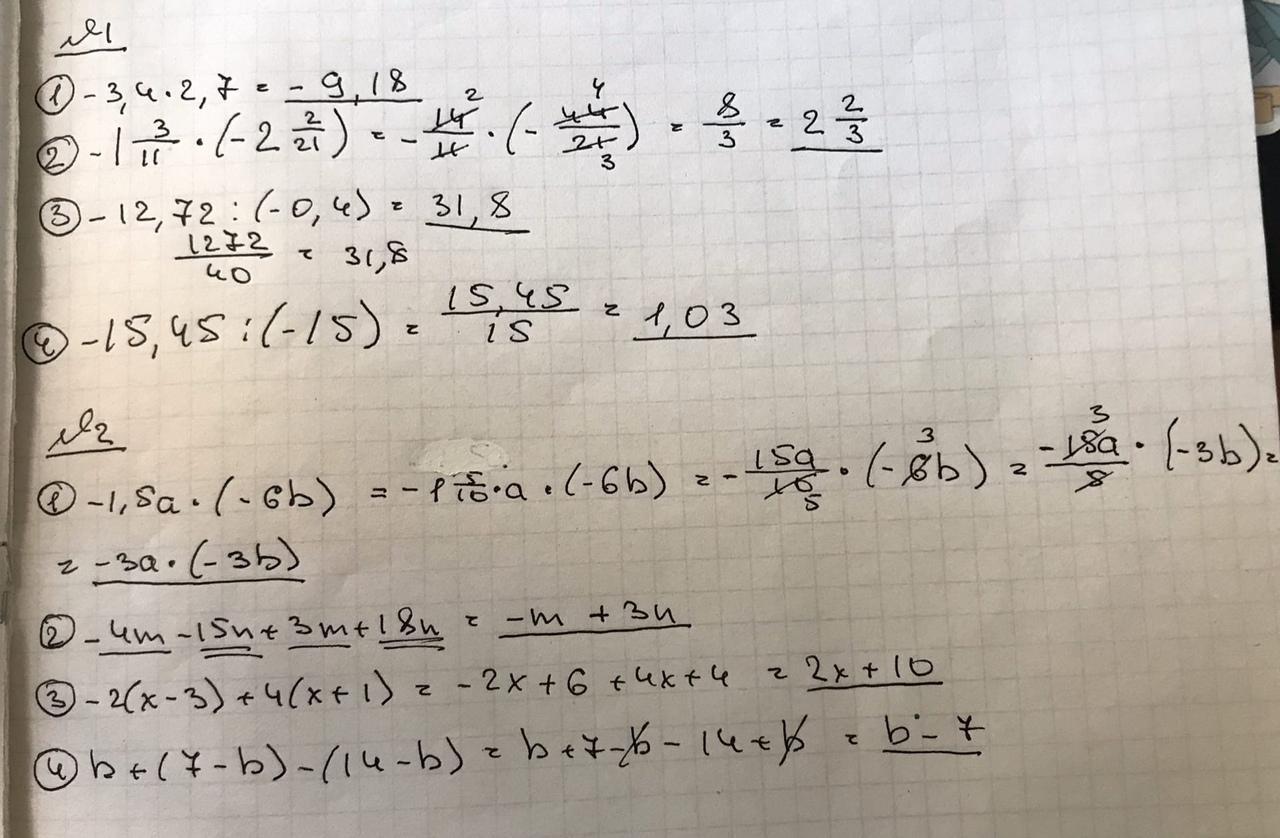 №1
① -3,4·2,7 = -9,18
② -1 3/11 · (-2 2/21) = -14/11 · (-44/21) = 8/3 = 2 2/3
2 4 3
③ -12,72 : (-0,4) = 31,8
1272/40 = 31,8
④ -15,45 : (-15) = 15,45/15 = 1,03
№2
① -1,5a · (-6b) = -1 5/10 · a · (-6b) = -15a/10 · (-6b) = -15a/5 · (-3b) =
3 5 3
= -3a · (-3b)
② -4m - 15n + 3m + 18n = -m + 3n
③ -2(x-3) + 4(x+1) = -2x + 6 + 4x + 4 = 2x + 10
④ b + (7-b) - (14-b) = b + 7 - b - 14 + b = b - 7